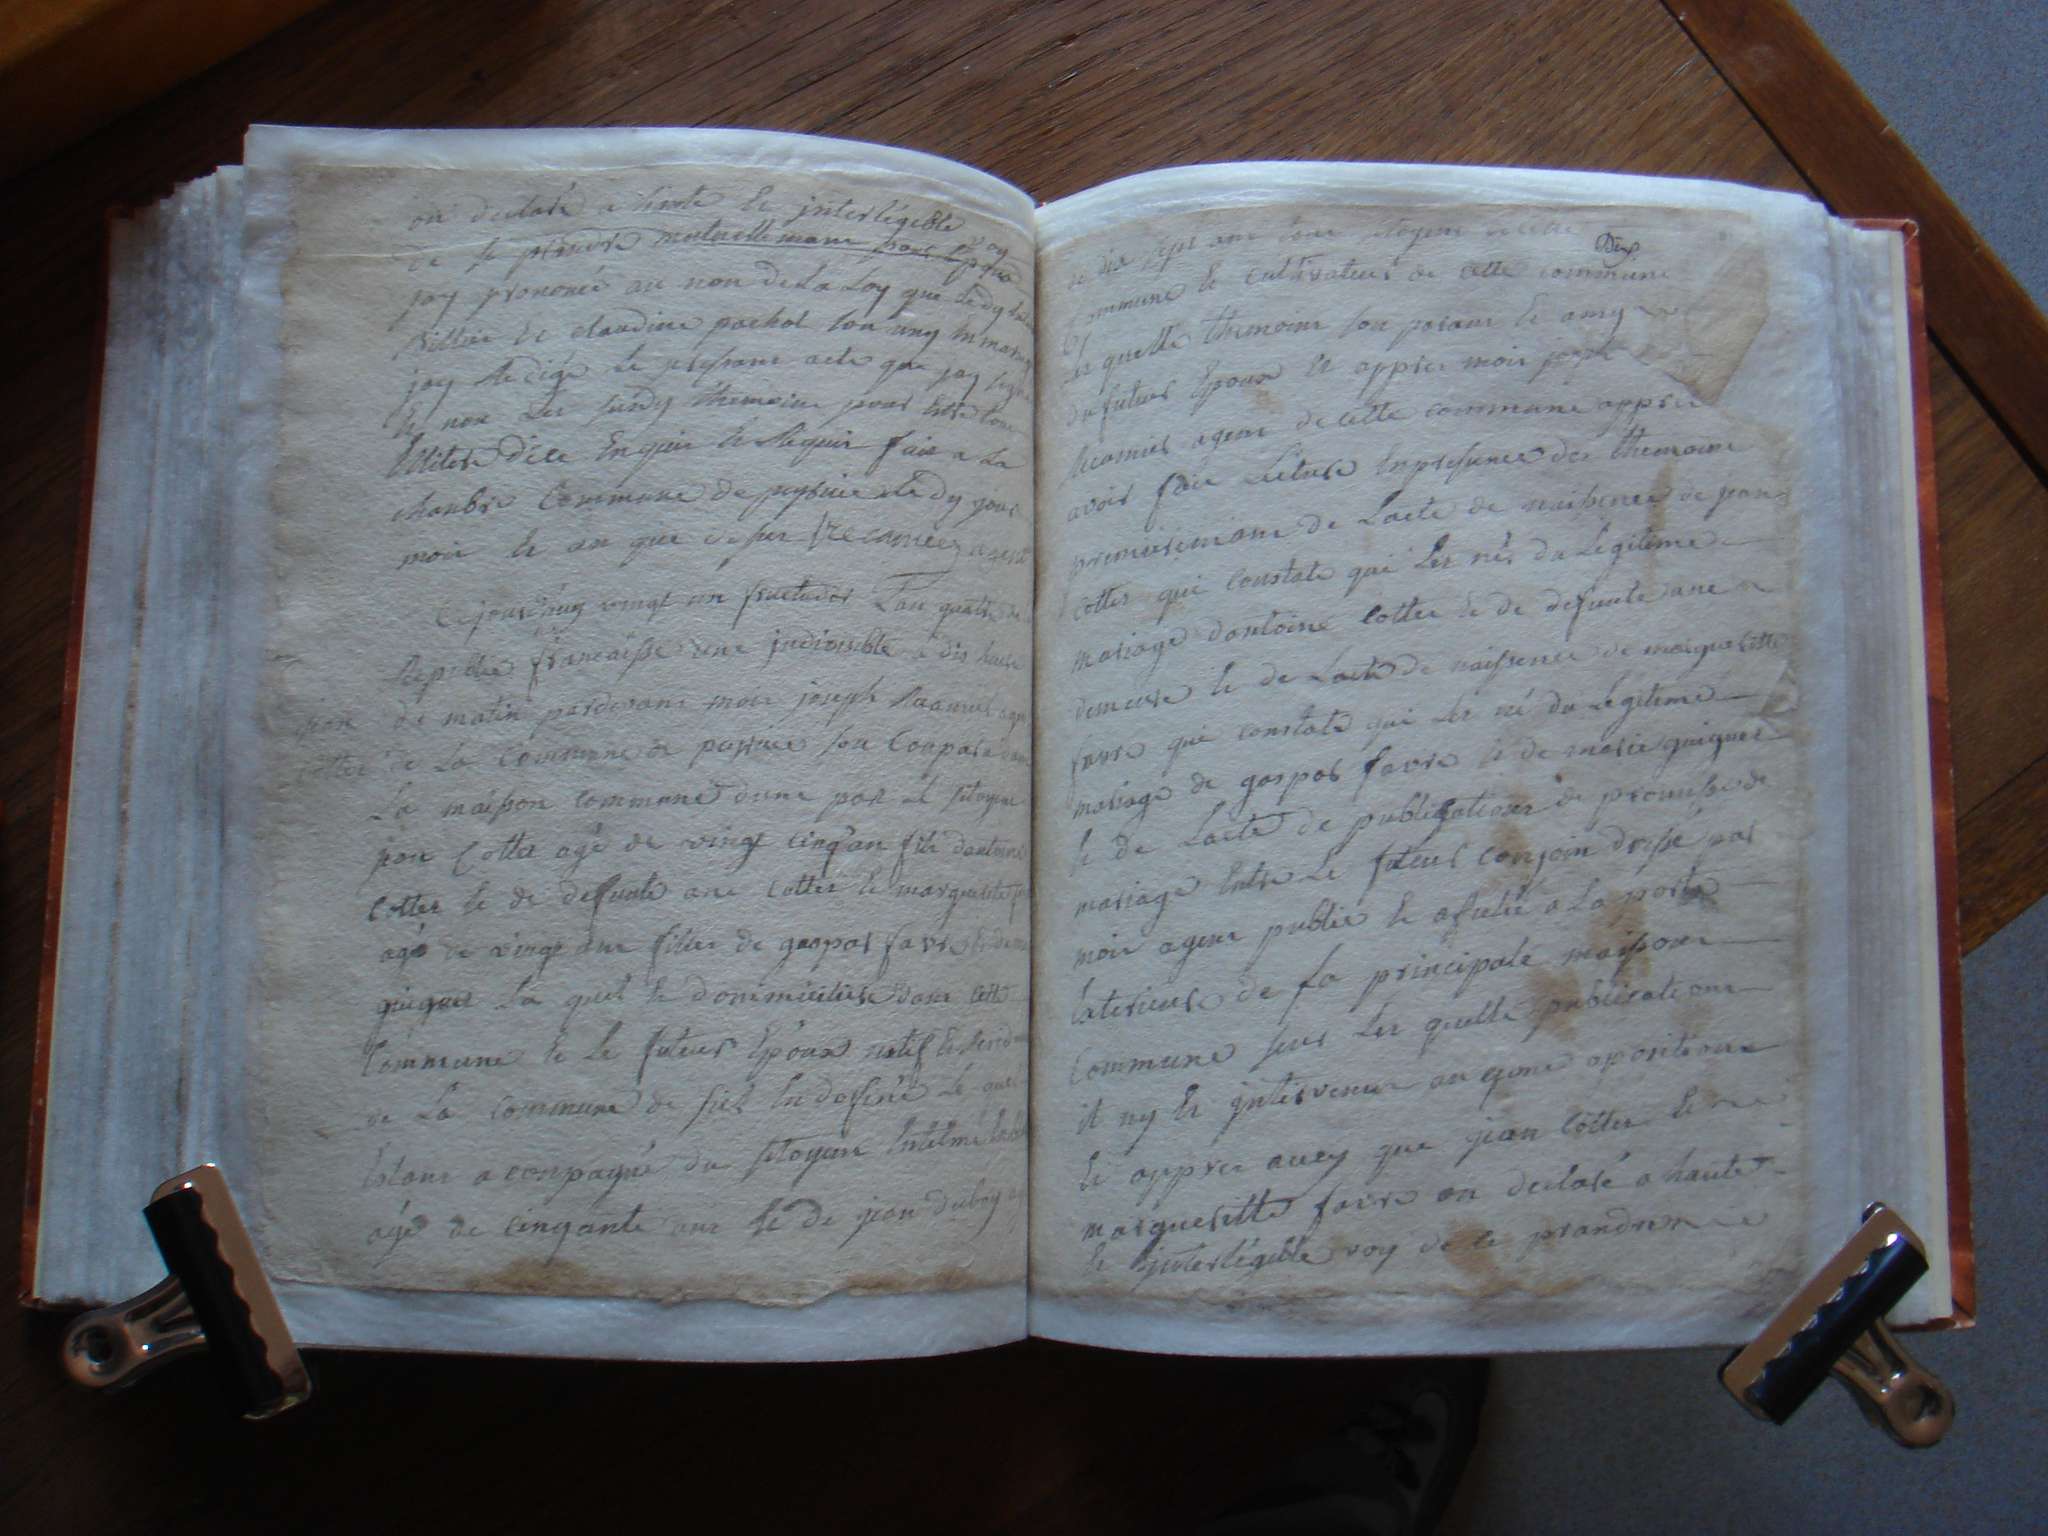 on declaré a haute et jnterlégible
voy
de se prendre mutuellement pour Epoux
jay prononcé au non de La Loy que Le dy
Billier et claudine pachot son uny En mariage
jay Redigé Le presant acte que jay signé
et non Les surdy themoins pour Estre
illiteré dice Enquis et Requis fait a La
chanbre commune de peysieu Le dy jour
mois et an que desus Récamier agent
Ce jourd'huy vingt un fructidor L'an quatre de
Republie francaisse une jndivisible a dix heure
jean du matin pardevant moy joseph Récamier agent
cottet de La commune de peysieu son Conparu dans
La maisson commune dune par Le sitoyen
jean Cottet agé de vingt cinq an fils dantoine
Cottet et de defunte ane cottet et marguerite
agé de vingt un fillie de gaspar favre et de
guiguet La quel et domimiciliée dans cette
Commune et Le futeur Epoux natif et
de La commune de En dofiné Le quel
Estant aconpagné du sitoyen
agé de cinqante ans et de jean duboy
de dix sept ans tous sitoyens de cette
Commune et cultivateur de cette commune
Les quelle themoins son parans et amy
du futeur Epoux et apprés mois joseph
Récamier agent de cette commune apprés
avoir fait Lecture En presence des themoins
premierement de Lacte de naissence de jean
Cottet qui constate qui Les né du Legitime
mariage dantoine Cottet et de defunte ane
demeure et de Lacte de naissence de marguerite
favre qui constate qui Les né du Légitime
mariage de gaspar favre et de marie guiguet
et de Lacte de publications de promisse de
mariage Entre Le futeur conjoin dressé par
mois agent publié et afiché a La porte
Exterieure de La principale maisson
Commune sur Les quelle publications
il ny Et jntervenu aucune opositions
Et apprés avey que jean Cottet et
marguerite favre on declaré a haute
et jnterlégible voy de se prandre